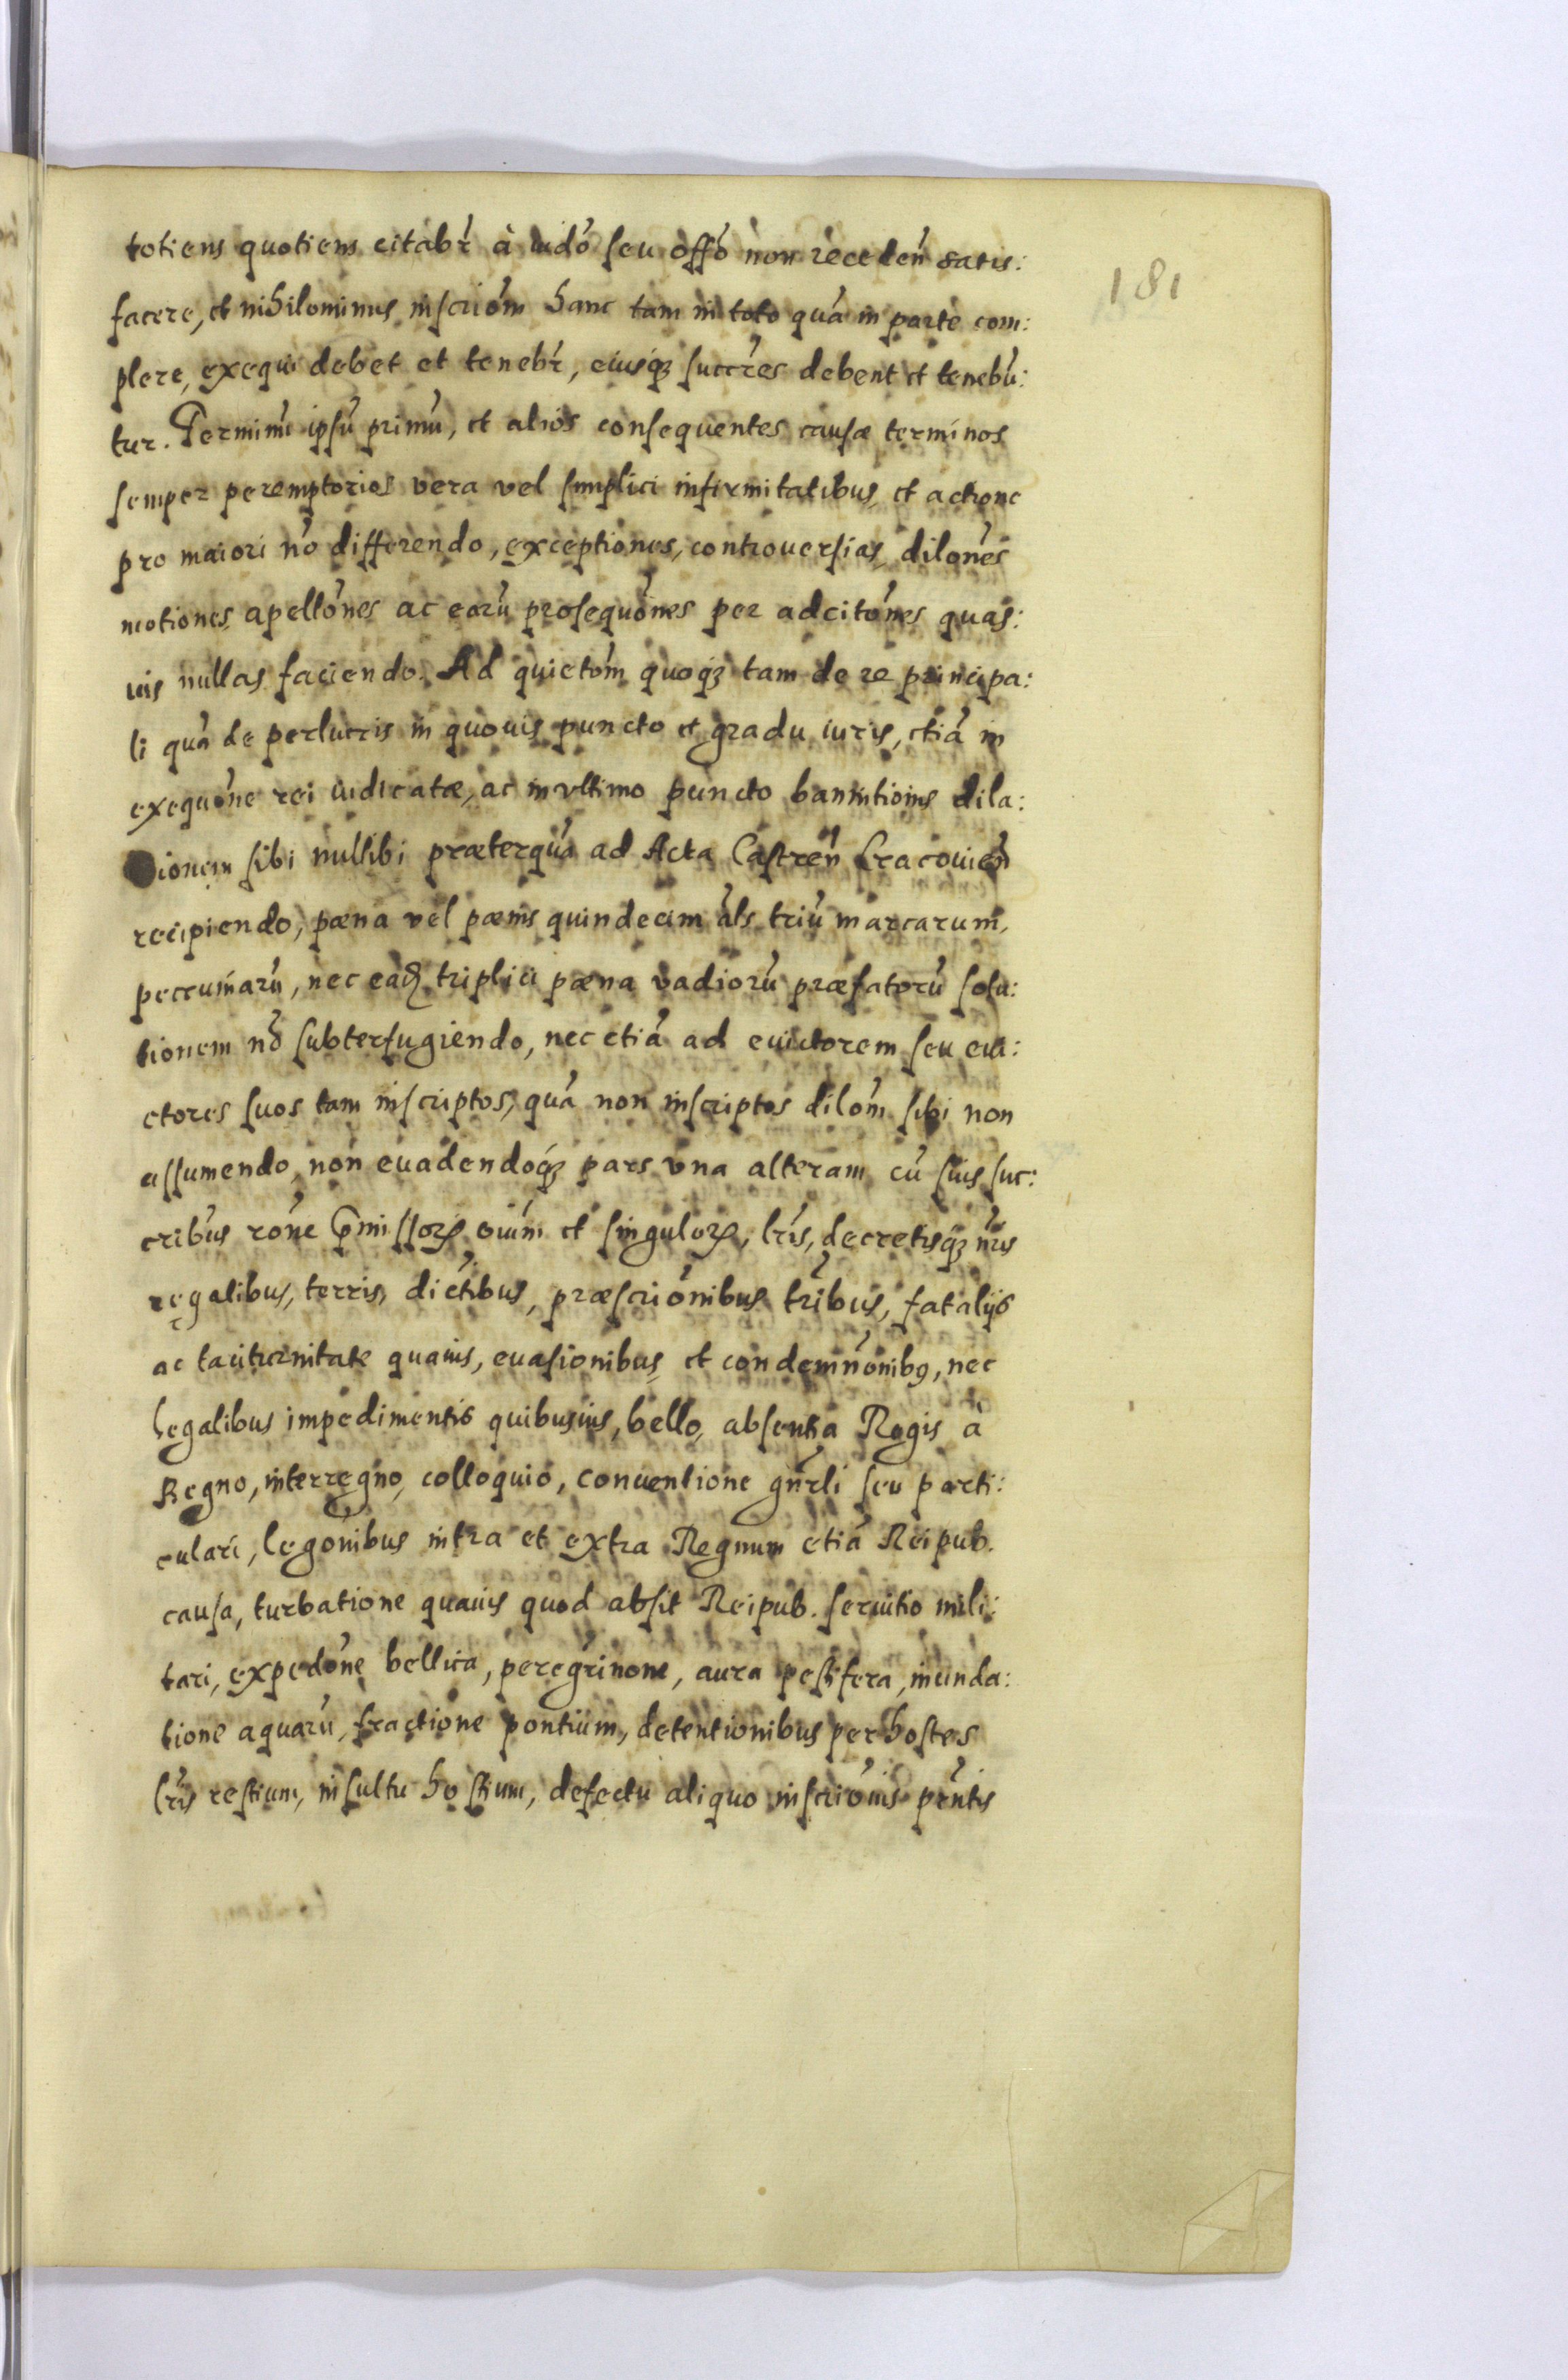 181
totiens quotiens citabr̃ à iudõ seu offõ non receden̄ satis:
facere, et nihilominus inscriõm hanc tam in toto quã in parte com:
plere, exequi debet et tenebr̃, eiusq₃ succr̃es debent et tenebũ:
tur. Terminũ ipsũ primũ, et alios consequentes causæ terminos
semper peremptorios vera vel simplici infirmitatibus, et actione
pro maiori nõ differendo, exceptiones, controuersias, dilões
motiones, apellões ac earũ prosequões per adcitões quas:
uis nullas faciendo. Ad quietõm quoq₃ tam de re principa:
li quã de perlucris in quouis puncto et gradu iuris, etiã in
exequõne rei iudicatæ, ac in vltimo puncto bannitionis dila:
tionem sibi nullibi præterquã ad Acta Castren̄ Cracouien̄
recipiendo, pæna vel pænis quindecim als̃ triũ marcarum,
peccuniarũ, nec eadẽ triplici pæna vadiorũ præfatorũ solu:
tionem nõ subterfugiendo, nec etiã ad euictorem seu eui:
ctores suos tam inscriptos, quã non inscriptos dilõm sibi non
assumendo, non euadendoq₃ pars vna alteram cũ suis suc:
cribus rõne p̃missoꝝ oium et singuloꝝ, lr̃is, decretisq₃ nr̃is
regalibus, terris, dictibus, præscriõnibus tribus, fatalijs
ac taciturnitate quauis, euasionibus et condemnõnibꝯ, nec
legalibus impedimentis quibusuis, bello, absentia Regis à
Regno, interregno, colloquio, conuentione gn̄rli seu parti:
culari, legõnibus intra et extra Regnum etiã Reipub.
causa, turbatione quauis quod absit Reipub. seruitio mili:
tari, expedõne bellica, peregrinone, aura pestifera, inunda:
tione aquarũ, fractione pontium, detentionibus per hostes
lr̃is restium, insultu hostium, defectu aliquo inscriõnis pr̃ntis